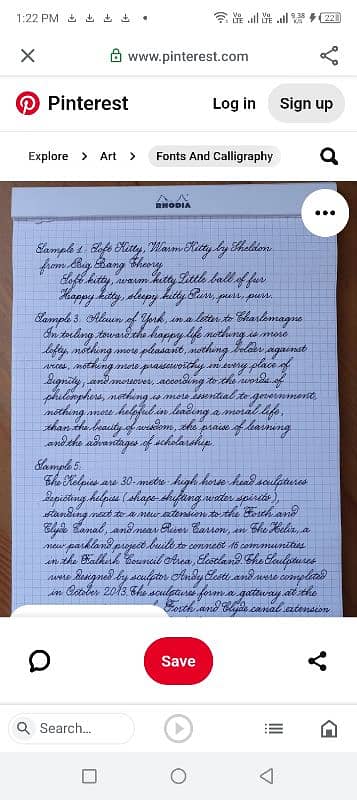 1:22 PM
Vo LTE Vo LTE 9.38 K/S 22
www.pinterest.com
Pinterest
Log in
Sign up
Explore > Art > Fonts And Calligraphy
RHODIA
Sample 1. Soft Kitty, Warm Kitty by Sheldon
from Big Bang Theory
Soft kitty, warm kitty Little ball of fur
Happy kitty, sleepy kitty Purr, purr, purr.
Sample 3. Alcuin of York, in a letter to Charlemagne
In toiling toward the happy life nothing is more
lofty, nothing more pleasant, nothing bolder against
vices, nothing more praiseworthy in every place of
dignity, and moreover, according to the words of
philosophers, nothing is more essential to government,
nothing more helpful in leading a moral life,
than the beauty of wisdom, the praise of learning
and the advantages of scholarship.
Sample 5:
The Kelpies are 30-metre-high horse-head sculptures
depicting kelpies (shape-shifting water spirits),
standing next to a new extension to the Forth and
Clyde Canal, and near River Carron, in The Helix, a
new parkland project built to connect 16 communities
in the Falkirk Council Area, Scotland. The Sculptures
were designed by sculptor Andy Scott and were completed
in October 2013. The sculptures form a gateway at the
Forth and Clyde canal extension
Save
Search...